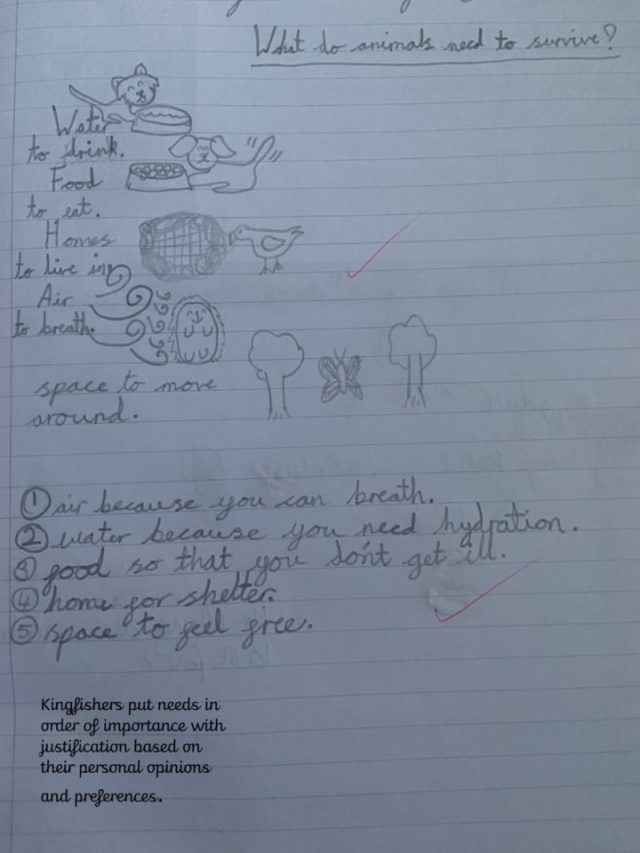 What do animals need to survive?
Water
to drink.
Food
to eat.
Homes
to live in
Air
to breath.
space to move
around.
① air because you can breath.
② water because you need hydration.
③ food so that you don't get ill.
④ home for shelter.
⑤ space to feel free.
Kingfishers put needs in
order of importance with
justification based on
their personal opinions
and preferences.